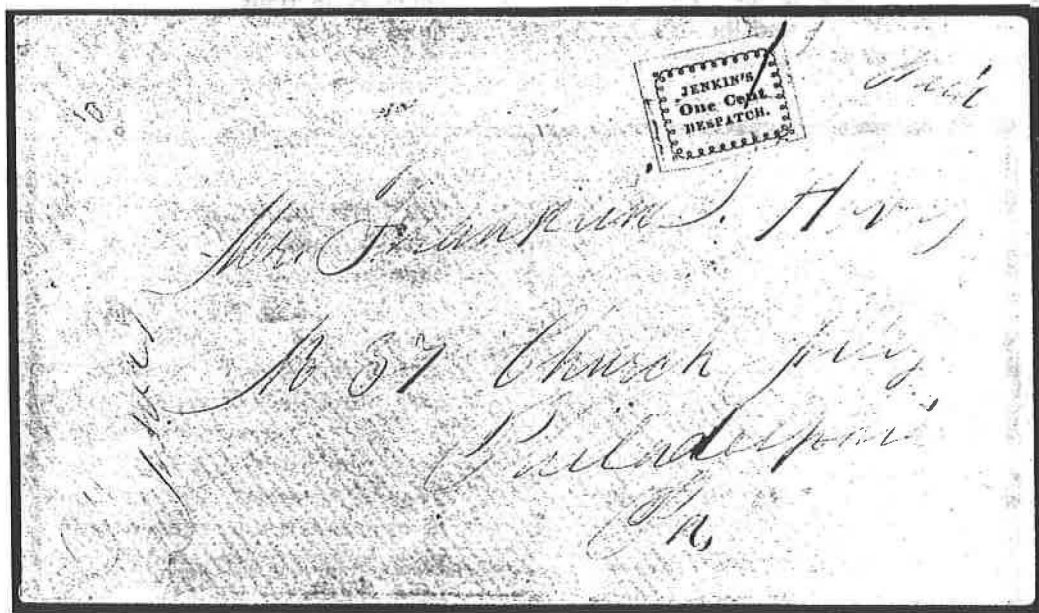 JENKIN'S
One Cent
DESPATCH.
Paid
Mr. Franklin S.
No 37 Church
Philadelphia
Pa